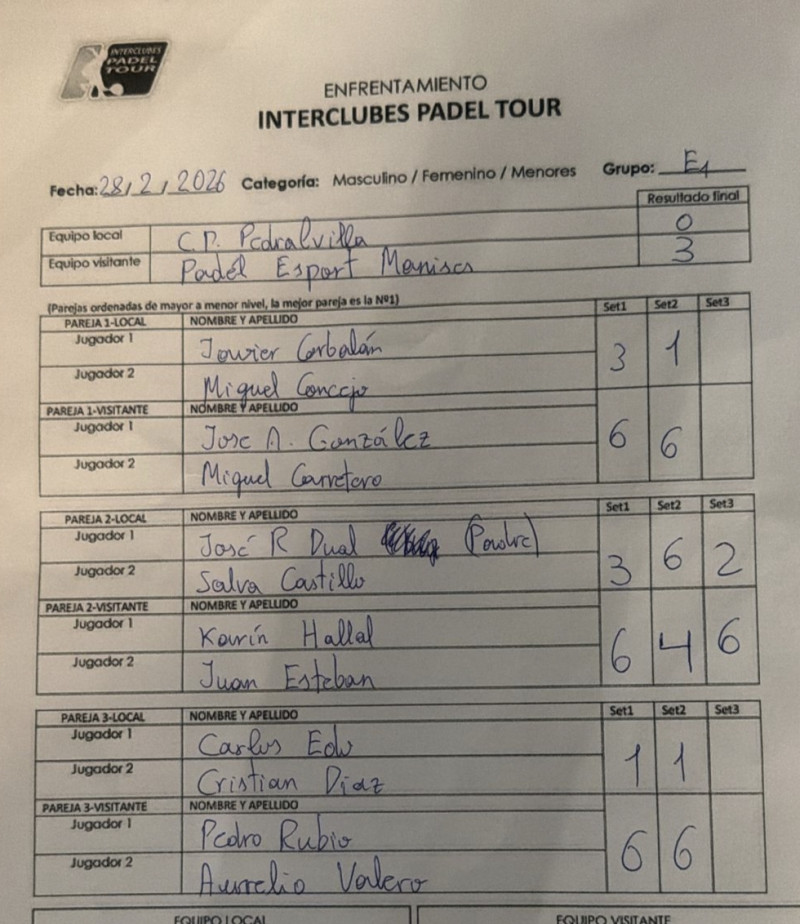 INTERCLUBES
PADEL
TOUR
ENFRENTAMIENTO
INTERCLUBES PADEL TOUR
Fecha: 28/2/2026 Categoría: Masculino / Femenino / Menores Grupo: E1
Resultado final
Equipo local C.P. Pedralvilla 0
Equipo visitante Padél Esport Manises 3
(Parejas ordenadas de mayor a menor nivel, la mejor pareja es la Nº1)
PAREJA 1-LOCAL NOMBRE Y APELLIDO Set1 Set2 Set3
Jugador 1 Javier Corbalán
Jugador 2 Miguel Concejo
3 1
PAREJA 1-VISITANTE NOMBRE Y APELLIDO
Jugador 1 Jose A. González
Jugador 2 Miguel Carretero
6 6
PAREJA 2-LOCAL NOMBRE Y APELLIDO Set1 Set2 Set3
Jugador 1 José R Dual (Padre)
Jugador 2 Salva Castillo
3 6 2
PAREJA 2-VISITANTE NOMBRE Y APELLIDO
Jugador 1 Karín Hallal
Jugador 2 Juan Esteban
6 4 6
PAREJA 3-LOCAL NOMBRE Y APELLIDO Set1 Set2 Set3
Jugador 1 Carlos Edo
Jugador 2 Cristian Díaz
1 1
PAREJA 3-VISITANTE NOMBRE Y APELLIDO
Jugador 1 Pedro Rubio
Jugador 2 Aurelio Valero
6 6
EQUIPO LOCAL EQUIPO VISITANTE